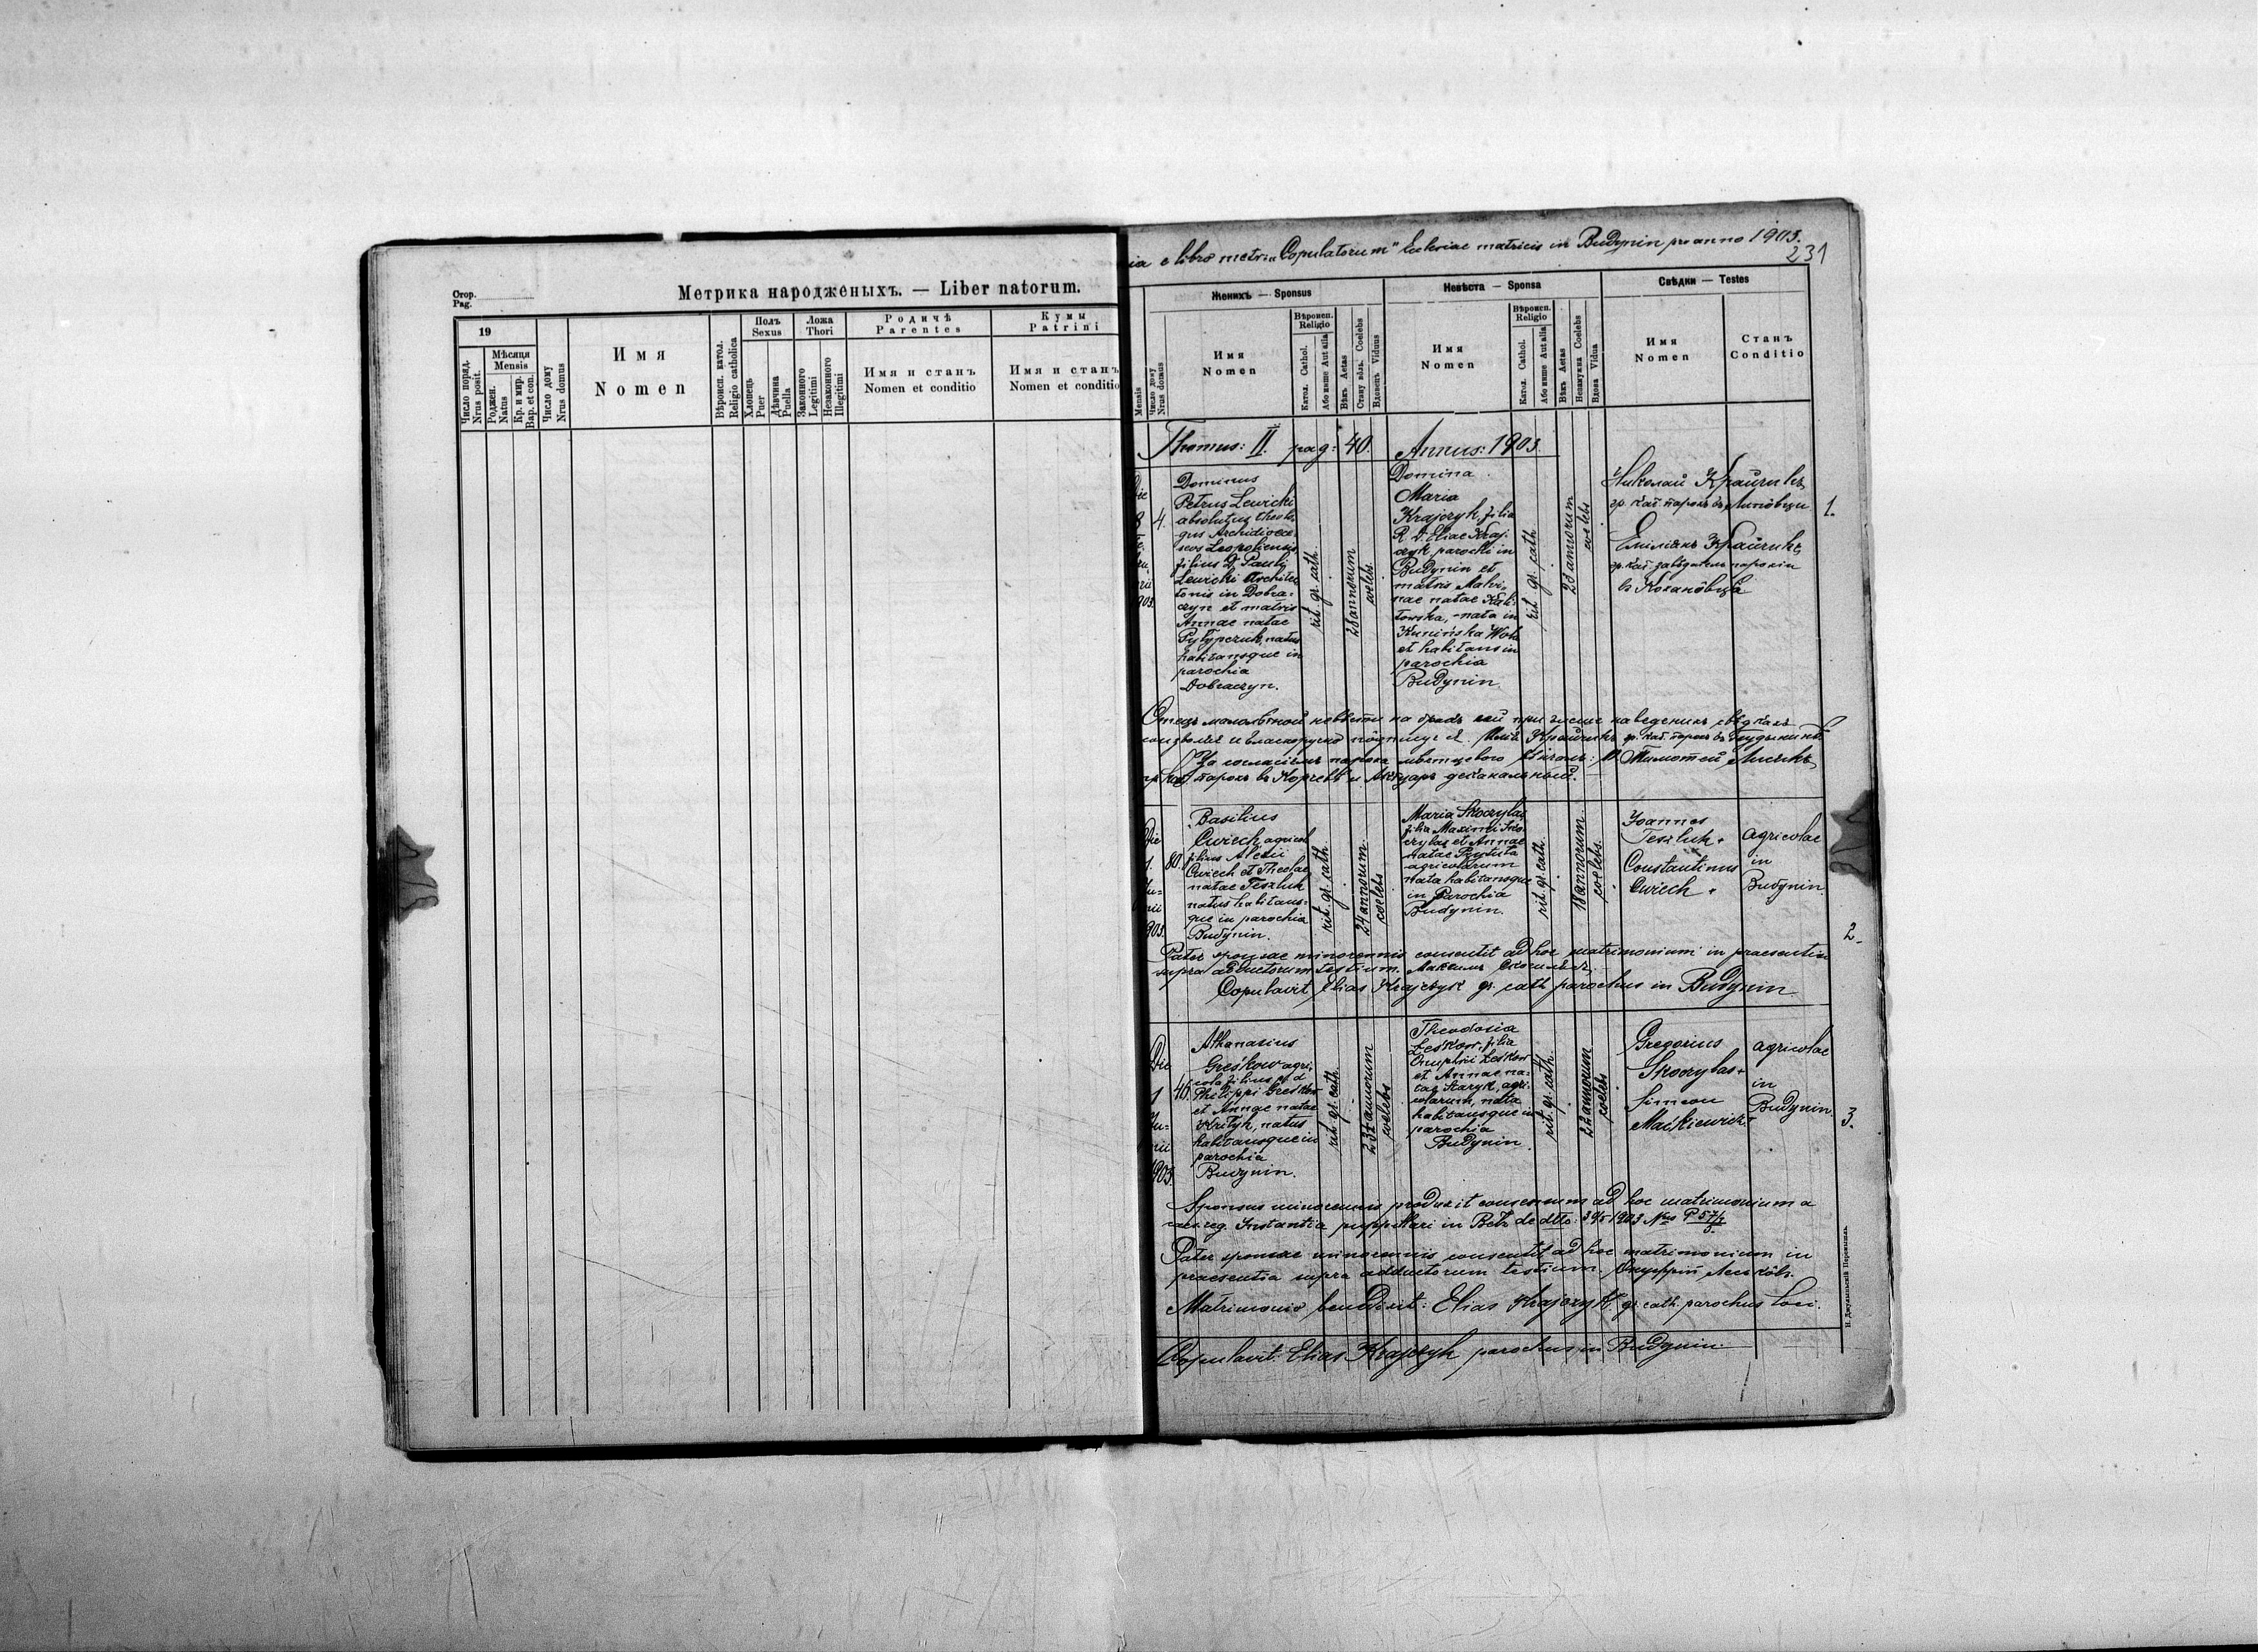 Стор.
Pag.
Метрика народженыхъ. — Liber natorum.
19
Число поряд.
Nrus posit.
Мѣсяця
Mensis
Роджен.
Natus
Кр. и мир.
Bap. et con.
Число дому
Nrus domus
Имя
Nomen
Вѣроисп. катол.
Religio catholica
Полъ
Sexus
Хлопець
Puer
Дѣвчина
Puella
Ложа
Thori
Законного
Legitimi
Незаконного
Illegitimi
Родичѣ
Parentes
Имя и станъ
Nomen et conditio
Кумы
Patrini
Имя и станъ
Nomen et conditio
ia e libro metr. „Copulatorum" Ecclesiae matricis in Budynin pro anno 1903.
231
Mensis
Число дому
Nrus domus
Женихъ — Sponsus
Имя
Nomen
Вѣроисп.
Religio
Катол. Cathol.
Або инше Aut alia
Вѣкъ Aetas
Стану вôль. Coelebs
Вдовецъ Viduus
Невѣста — Sponsa
Имя
Nomen
Вѣроисп.
Religio
Катол. Cathol.
Або инше Aut alia
Вѣкъ Aetas
Незамужна Coelebs
Вдова Vidua
Свѣдки — Testes
Имя
Nomen
Станъ
Conditio
Thomus: II. pag: 40. Annus: 1903.
Die
8
903.
4.
Dominus
Petrus Lewicki
absolutus theolo-
gus Archidioece-
seos Leopoliensis
filius D. Pauli
Lewicki Architec
tonis in Dobra-
czyn et matris
Annae natae
Pylypczuk, natus
habitansque in
parochia
Dobraczyn.
rit. gr. cath.
28 annorum
coelebs
Domina
Maria
Krajczyk, filia
R. D. Eliae Kraj-
czyk parochi in
Budynin et
matris Malvi-
nae natae
towska, nata in
Kunińska Wola
et habitans in
parochia
Budynin.
rit. gr. cath.
23 annorum
coelebs
Николай Крайчикъ,
гр. кат. парохъ въ Липôвци
Емилiянъ Крайчикъ,
гр. кат. завѣдатель парохiи
въ Кохановцѣ
1.
Отець малолѣтной невѣсты на бракъ сей при выше наведеныхъ свѣдкахъ
Илiя Крайчикъ гр. кат. парох въ Будынинѣ.
За согласiемъ пароха мѣстцевого вѣнчалъ: Тимотей Лисикъ,
гр. кат. парох въ Корчевѣ и Актуаръ деканальный.
Die
1.
Ju-
nii
903.
80.
Basilius
Cwiech agricola
filius Alexii
Cwiech et Theclae
natae Teszluk
natus habitans-
que in parochia
Budynin.
rit. gr. cath.
24 annorum
coelebs
Maria Skoczylas
filia Maximi Sko-
czylas et Annae
natae Prytuta
agricolarum
nata habitansque
in Parochia
Budynin.
rit. gr. cath.
18 annorum
coelebs.
Joannes
Teszluk +
Constantinus
Cwiech +
agricolae
in
Budynin.
2.
Pater sponsae minorennis consentit ad hoc matrimonium in praesentia
supra adductorum testium. Максимъ Скочилясъ,
Copulavit Elias Krajczyk gr. cath parochus in Budynin
Die
1
Ju-
nii
903.
46.
Athanasius
Greśkow agri-
cola filius
Philippi Greśkow
et Annae natae
Krityk, natus
habitansque in
parochia
Budynin.
rit. gr. cath.
23½ annorum
coelebs
Theodosia
Leśkow, filia
Onuphrii Leśkow
et Annae na-
tae Staryk, agri-
colarum, nata
habitansque in
parochia
Budynin.
rit. gr. cath.
22 annorum
coelebs
Gregorius
Skoczylas +
Simeon
Maśkiewicz +
agricolae
in
Budynin.
3.
Sponsus minorennis produxit consensum ad hoc matrimonium a
caes. reg. Instantia puppillari in Bełz de dtto: 30/5 1903
Pater sponsae minorennis consentit ad hoc matrimonium in
praesentia supra adductorum testium. Онуфрiй Леськôвъ.
Matrimonio benedixit: Elias Krajczyk gr. cath. parochus loci.
Copulavit: Elias Krajczyk parochus in Budynin.
Н. Джулынскiй Перемышль.